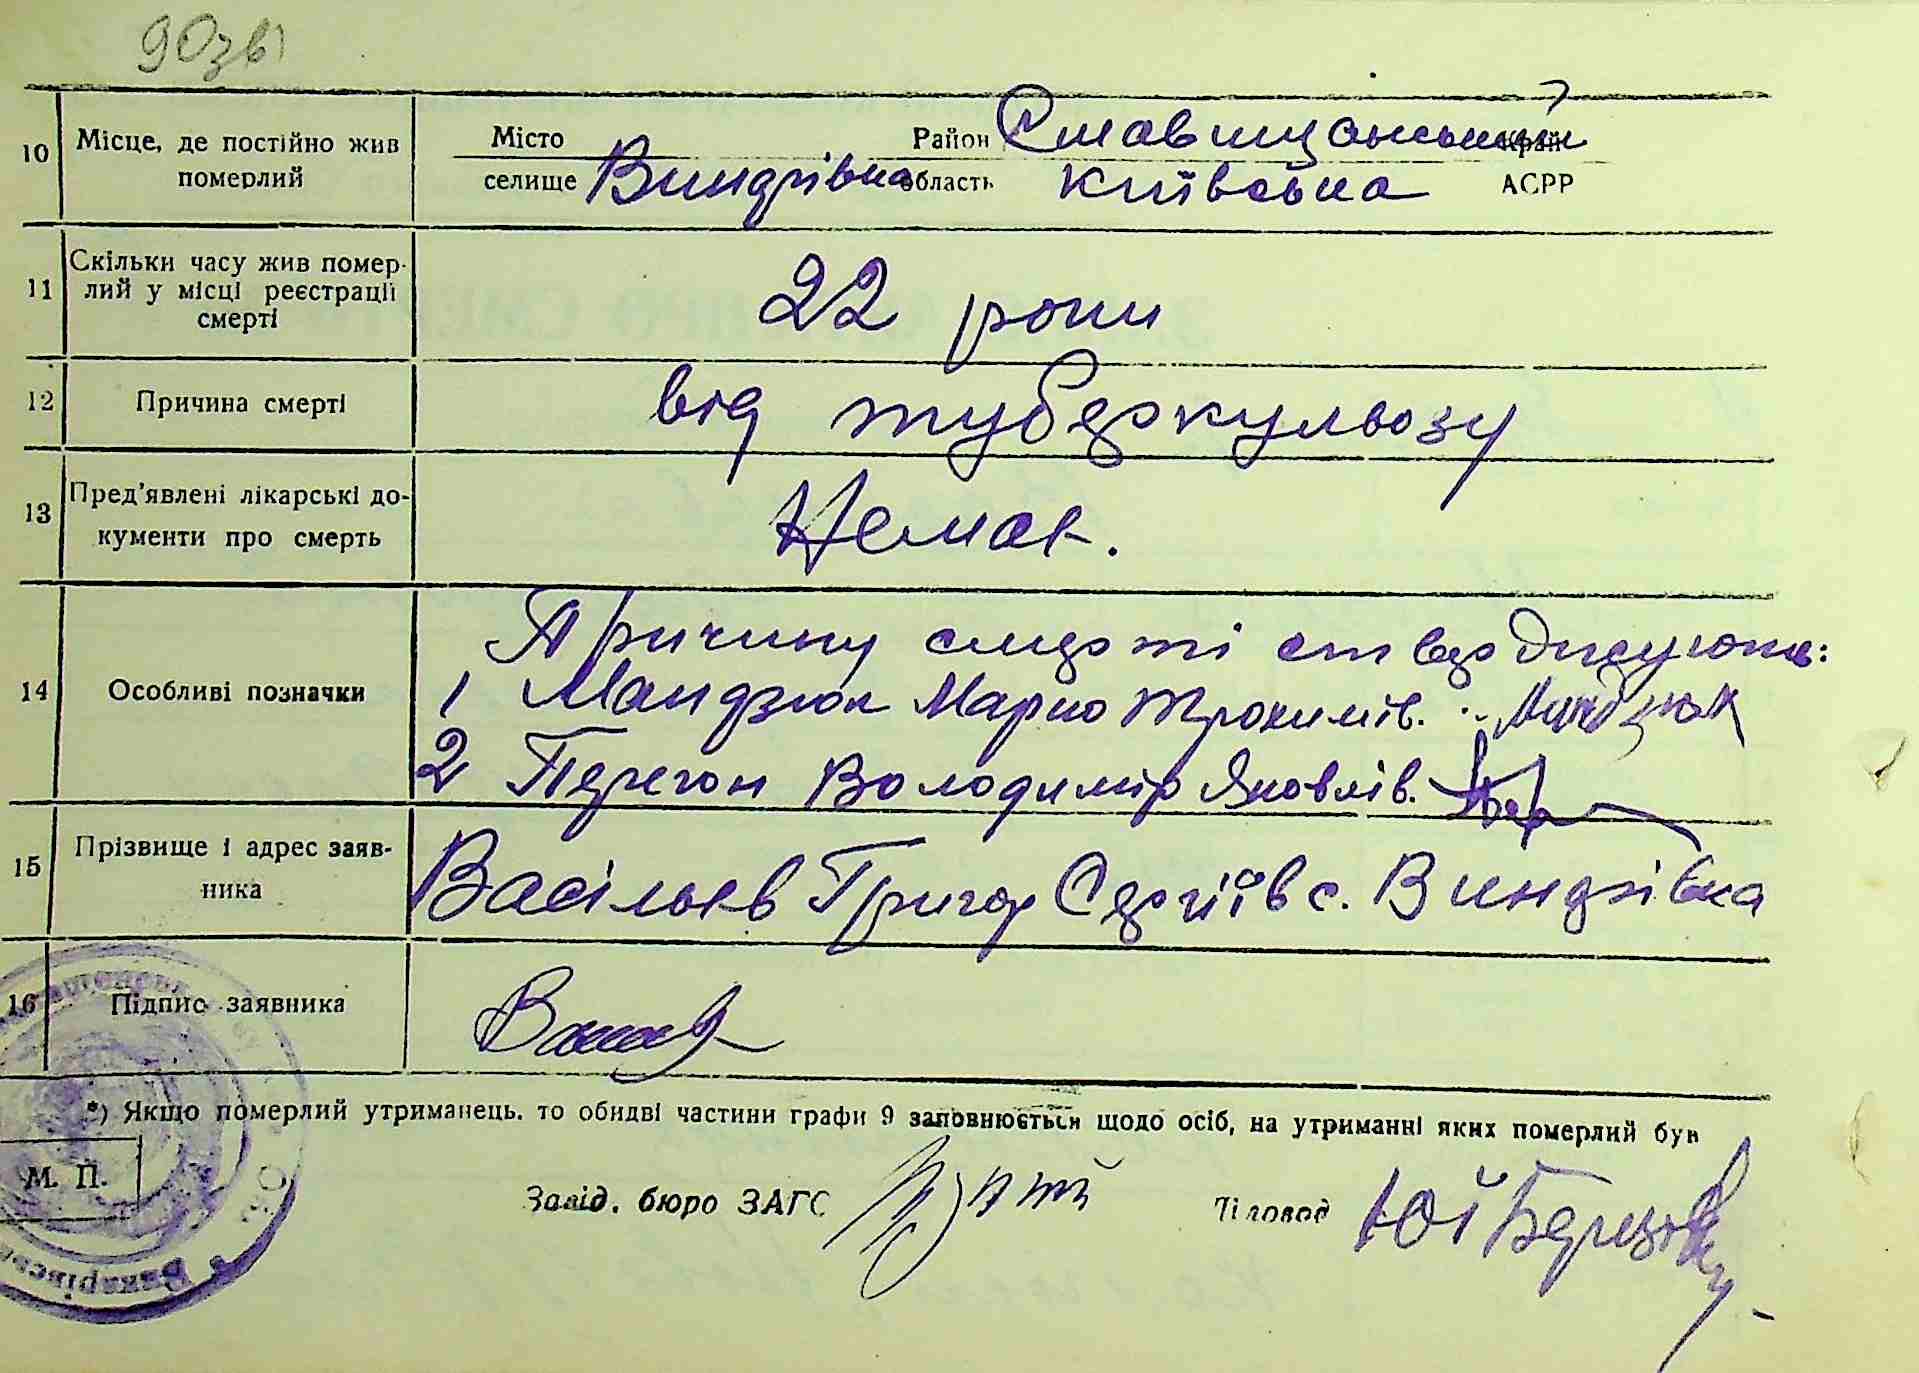 90зв
10 Місце, де постійно жив померлий
Місто Район Ставищанський край
селище Виндрівка область Київська АСРР
11 Скільки часу жив помер-
лий у місці реєстрації
смерті
22 роки
12 Причина смерті від туберкульозу
13 Пред'явлені лікарські до-
кументи про смерть
Немає.
14 Особливі позначки
Причину смерті стверджують:
1 Мандзюк Марко Трохимів. Мандзюк
2 Перегон Володимір Яковлів.
15 Прізвище і адрес заяв-
ника
Васільєв Григор Сергіїв с. Виндрівка
16 Підпис заявника
*) Якщо померлий утриманець. то обидві частини графи 9 заповнюється щодо осіб, на утриманні яких померлий був
М. П.
Завід. бюро ЗАГС Діловод